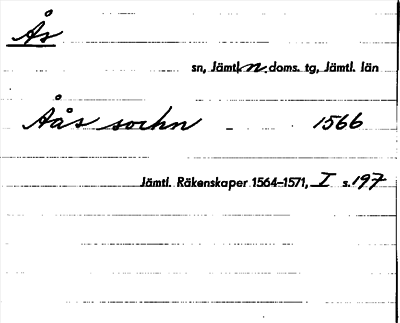 Ås
sn, Jämtl. n. doms. tg, Jämtl. län
Åås sochn - 1566
Jämtl. Räkenskaper 1564-1571, I s. 197